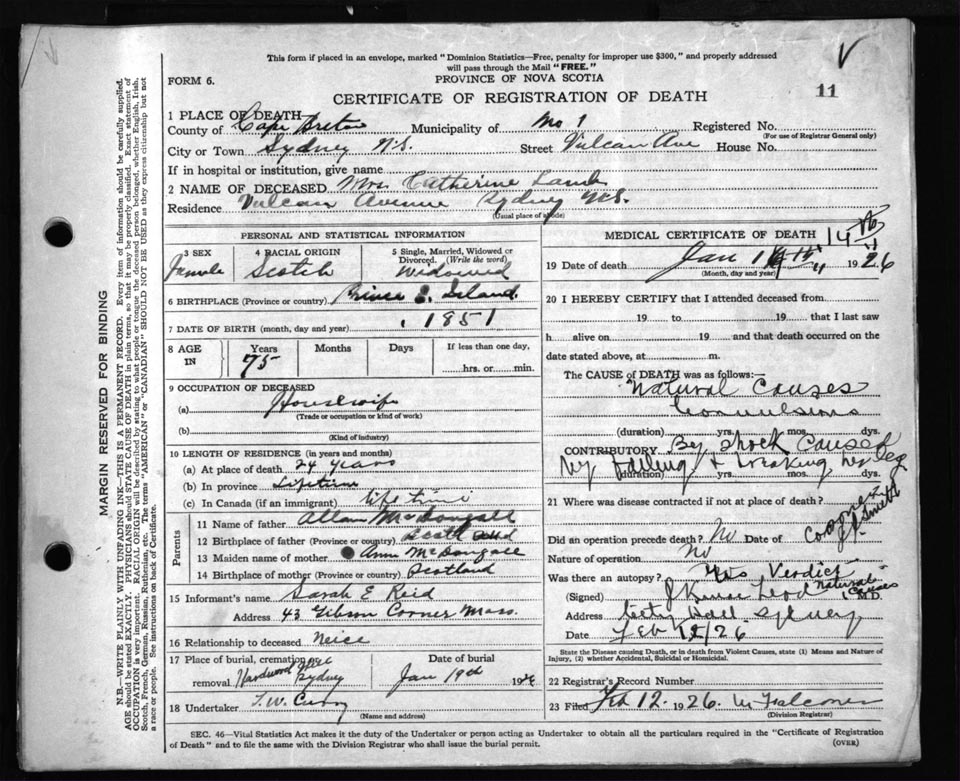 This form if placed in an envelope, marked "Dominion Statistics—Free, penalty for improper use $300," and properly addressed
will pass through the Mail "FREE."
FORM 6.
PROVINCE OF NOVA SCOTIA
11
CERTIFICATE OF REGISTRATION OF DEATH
1 PLACE OF DEATH—
County of Cape Breton Municipality of No 1 Registered No.
(For use of Registrar General only)
City or Town Sydney N.S. Street Vulcan Ave House No.
If in hospital or institution, give name
2 NAME OF DECEASED Mrs. Catherine Lamb
Residence Vulcan Avenue Sydney N.S.
(Usual place of abode)
PERSONAL AND STATISTICAL INFORMATION
3 SEX
Female
4 RACIAL ORIGIN
Scotch
5 Single, Married, Widowed or
Divorced. (Write the word)
Widowed
6 BIRTHPLACE (Province or country) Prince E. Island.
7 DATE OF BIRTH (month, day and year) 1851
8 AGE
IN
Years
75
Months
Days
If less than one day,
hrs. or min.
9 OCCUPATION OF DECEASED
(a) Housewife
(Trade or occupation or kind of work)
(b)
(Kind of industry)
10 LENGTH OF RESIDENCE (in years and months)
(a) At place of death 24 years
(b) In province Lifetime
(c) In Canada (if an immigrant) life time
Parents
11 Name of father Allan McDougall
12 Birthplace of father (Province or country)
13 Maiden name of mother Ann McDougall
14 Birthplace of mother (Province or country) Scotland
15 Informant's name Sarah E Reid
Address 43 Gibson Corner Mass.
16 Relationship to deceased Neice
17 Place of burial, cremation or
removal Hardwood Sydney
Date of burial
Jan 19th 192
18 Undertaker T.W. Curry
(Name and address)
MEDICAL CERTIFICATE OF DEATH
14th
19 Date of death Jan 1926
(Month, day and year)
20 I HEREBY CERTIFY that I attended deceased from
19 to 19 that I last saw
h alive on 19 and that death occurred on the
date stated above, at m.
The CAUSE OF DEATH was as follows:
Natural Causes
Convulsions
(duration) yrs. mos. dys.
CONTRIBUTORY By shock caused
by falling & breaking her leg
(duration) yrs. mos. dys.
21 Where was disease contracted if not at place of death?
Did an operation precede death? No Date of
Coroner
Nature of operation No
Was there an autopsy? Verdict
natural causes
(Signed) M.D.
Address City Hall Sydney
Date Feb 12/26
State the Disease causing Death, or in death from Violent Causes, state (1) Means and Nature of
Injury, (2) whether Accidental, Suicidal or Homicidal.
22 Registrar's Record Number
23 Filed Feb 12. 1926.
(Division Registrar)
SEC. 46—Vital Statistics Act makes it the duty of the Undertaker or person acting as Undertaker to obtain all the particulars required in the "Certificate of Registration
of Death" and to file the same with the Division Registrar who shall issue the burial permit.
(OVER)
MARGIN RESERVED FOR BINDING
N.B.—WRITE PLAINLY WITH UNFADING INK—THIS IS A PERMANENT RECORD. Every item of information should be carefully supplied.
AGE should be stated EXACTLY. PHYSICIANS should state CAUSE OF DEATH in plain terms, so that it may be properly classified. Exact statement of
OCCUPATION is very important. RACIAL ORIGIN will be described by stating to what people or tongue the deceased person belonged, whether English, Irish,
Scotch, French, German, Russian, Ruthenian, etc. The terms "AMERICAN" or "CANADIAN" SHOULD NOT BE USED as they express citizenship but not
a race or people. See instructions on back of Certificate.